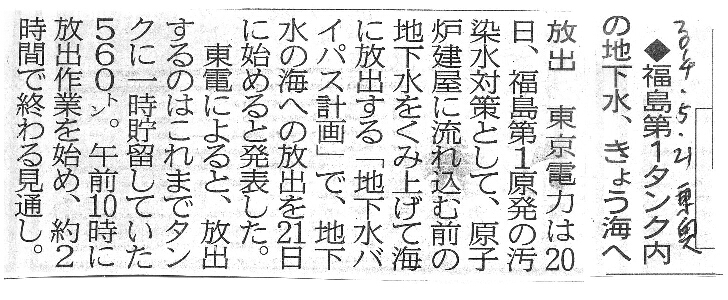 2014.5.21
◆福島第1タンク内
の地下水、きょう海へ
放出　東京電力は20
日、福島第1原発の汚
染水対策として、原子
炉建屋に流れ込む前の
地下水をくみ上げて海
に放出する「地下水バ
イパス計画」で、地下
水の海への放出を21日
に始めると発表した。
　東電によると、放出
するのはこれまでタン
クに一時貯留していた
560㌧。午前10時に
放出作業を始め、約2
時間で終わる見通し。